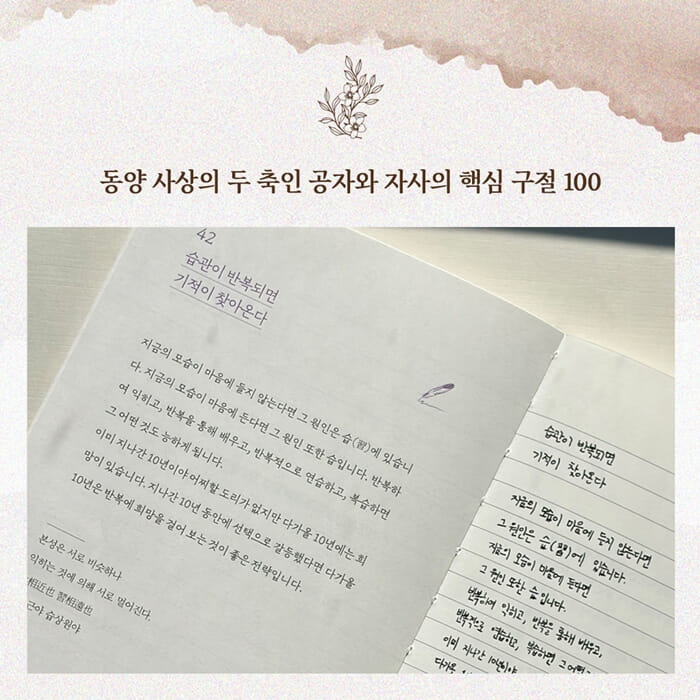 동양 사상의 두 축인 공자와 자사의 핵심 구절 100
42
습관이 반복되면
기적이 찾아온다
지금의 모습이 마음에 들지 않는다면 그 원인은 습(習)에 있습니
다. 지금의 모습이 마음에 든다면 그 원인 또한 습입니다. 반복하
여 익히고, 반복을 통해 배우고, 반복적으로 연습하고, 복습하면
그 어떤 것도 능하게 됩니다.
이미 지나간 10년이야 어찌할 도리가 없지만 다가올 10년에는 희
망이 있습니다. 지나간 10년 동안에 선택으로 갈등했다면 다가올
10년은 반복에 희망을 걸어 보는 것이 좋은 전략입니다.
본성은 서로 비슷하나
익히는 것에 의해 서로 멀어진다.
相近也 習相遠也
근야 습상원야
습관이 반복되면
기적이 찾아온다
지금의 모습이 마음에 들지 않는다면
그 원인은 습(習)에 있습니다.
지금의 모습이 마음에 든다면
그 원인 또한 습입니다.
반복하여 익히고, 반복을 통해 배우고,
반복적으로 연습하고, 복습하면 그 어떤
이미 지나간 10년이야
다가올